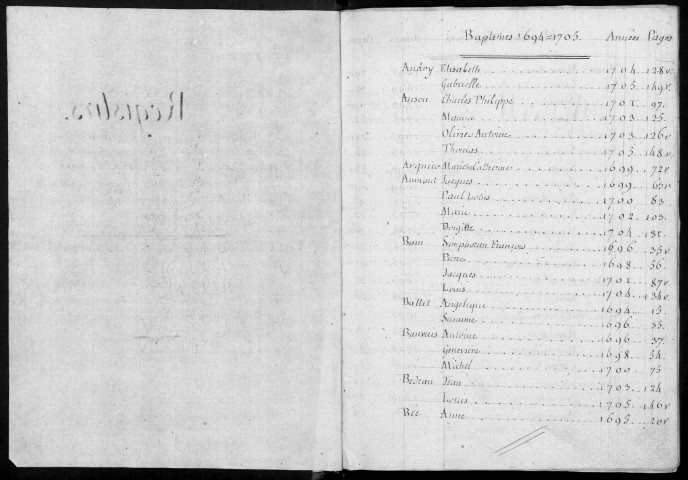 Registres.
Baptêmes 1694=1705. Années Pages
Andry Elisabeth 1704. 128v.
Gabrielle 1705. 149v.
Anson Charles Philippe 1701. 97.
Maurice 1703. 125.
Olivier Antoine 1703. 126v
Thomas 1705. 148v
Marie Catherine 1699. 72v
Aumont Jacques 1699.
Paul Louis 1700. 83.
Marie 1702. 103.
Brigitte 1704. 131.
Bain Simphorien François 1696. 35v
Pierre 1698. 56.
Jacques 1701. 87v
Louis 1704. 134v.
Ballet Angelique 1694. 15.
Susanne 1696. 35.
Bauvais Antoine 1696. 37.
Genevieve 1698. 54.
Michel 1700. 75
Bedeau Jean 1703. 124
Louis 1705. 146v
Anne 1695. 20v